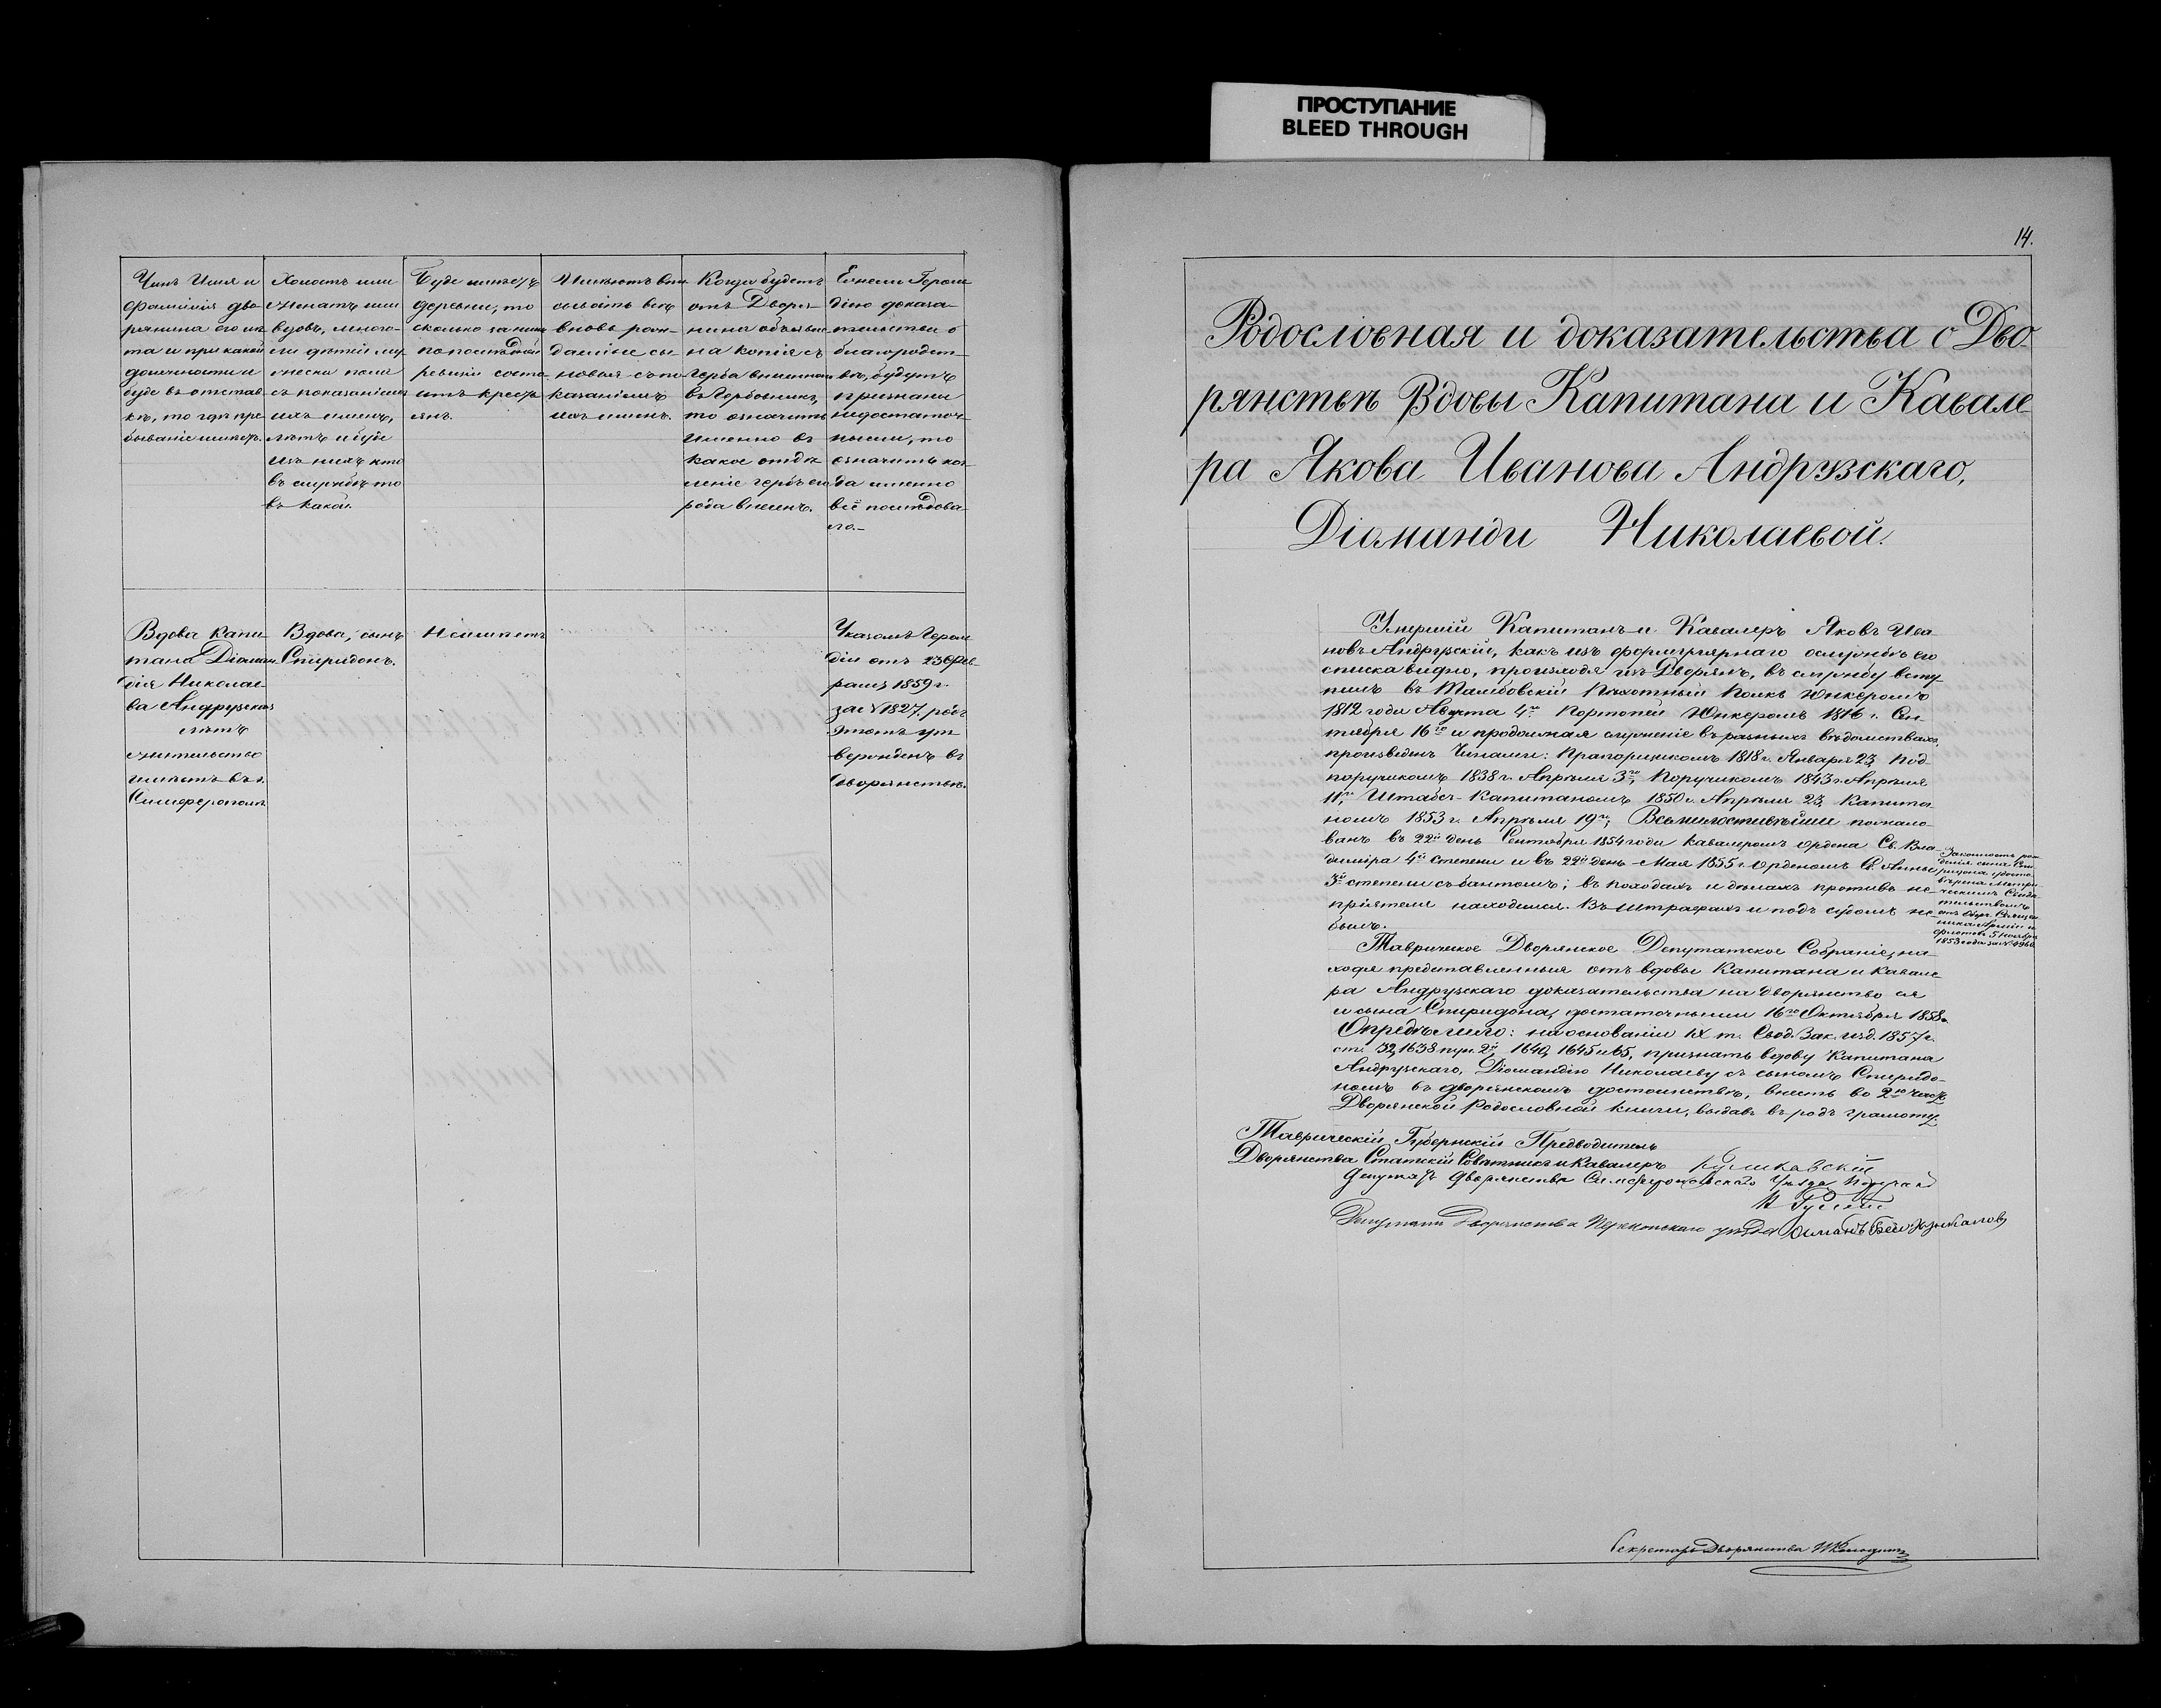 ПРОСТУПАНИЕ
BLEED THROUGH
Чинъ Имя и
Фамилія дво-
рянина его лѣ-
та и при какой
должности и
буде въ отстав-
кѣ, то гдѣ пре-
бываніе имѣетъ.
Холостъ или
женатъ или
вдовъ, много-
ли дѣтей му-
жеска пола
съ показаніемъ
ихъ именъ,
лѣтъ и буде
изъ нихъ кто
въ службѣ то
въ какой.
Буде имѣетъ
деревни, то
сколько за нимъ
по последней
ревизіи состо-
итъ кресть-
янъ.
вновь рож-
денные сы-
новья съ по-
казаніемъ
ихъ именъ.
Когда будетъ
отъ Дворя-
нина объявле-
на копія съ
Герба внесенная
въ Гербовникъ,
то означить
именно въ
какое отдѣ-
леніе гербъ его
рода внесенъ.
Ежели Героль-
діею доказа-
тельства о
благородст-
вѣ, будутъ
признаны
недостаточ-
ными, то
означить ког-
да именно
всё последова-
ло.-
Вдова Капи-
тана Діоман-
дія Николае-
ва Андрузская
лѣтъ
жительство
имѣетъ въ г.
Симферополѣ
Вдова, сынъ
Спиридонъ.
Не имѣетъ
Указомъ Героль-
діи отъ 23 Фев-
раля 1859 г.
за № 1827. родъ
этотъ ут-
вержденъ въ
дворянствѣ.
14.
Родословная и доказательства о Дво-
рянствѣ Вдовы Капитана и Кавале-
ра Якова Иванова Андрузскаго,
Діоманди Николаевой.
Умершій Капитанъ и Кавалеръ Яковъ Ива-
новъ Андрузскій, какъ изъ формулярнаго о службѣ его
списка видно, происходя изъ Дворянъ, въ службу всту-
пилъ въ Тамбовскій Пехотный Полкъ Юнкеромъ
1812 года Августа 4го Портопей Юнкеромъ 1816 г. Сен-
тября 16го и продолжая служеніе въ разныхъ вѣдомствахъ,
произведенъ Чинами: Прапорщикомъ 1818 г. Января 23, Под-
поручикомъ 1838 г. Апрѣля 3го, Поручикомъ 1843 г. Апрѣля
11го, Штабсъ-Капитаномъ 1850 г. Апрѣля 23, Капита-
номъ 1853 г. Апрѣля 19го; Всемилостивѣйше пожало-
ванъ въ 22й день Сентября 1854 года Кавалеромъ ордена Св. Вла-
диміра 4й степени и въ 22й день Мая 1855 г. Орденомъ Св. Анны
3й степени съ бантомъ; въ походахъ и дѣлахъ противъ не-
пріятеля находился. Въ штрафахъ и подъ судомъ не
былъ.
Законность рож-
денія сына Спи-
ридона удосто-
вѣрена Метри-
ческимъ Свидѣ-
тельствомъ
отъ Обер. Священ-
ника Арміи и
флотовъ 5 Ноября
1853 года за №
Таврическое Дворянское Депутатское Собраніе, на-
ходя представленныя отъ вдовы Капитана и Кавале-
ра Андрузскаго доказательства на дворянство ея
и сына Спиридона, достаточными 16го Октября 1858 г.
Опредѣлило: на основаніи IX т. Свод. Зак. изд. 1857 г.
ст. 32, 1638 пун. 2й, 1640, 1645 и 65, признать вдову Капитана
Андрузскаго, Діомандію Николаеву съ сыномъ Спиридо-
номъ въ дворянскомъ достоинствѣ, внесть во 2ю часть
Дворянской Родословной книги, выдавъ въ родъ грамоту
Таврическій Губернскій Предводитель
Дворянства Статскій Совѣтникъ и Кавалеръ Куликовскій
Депутатъ Дворянства Симферопольскаго Уѣзда
Депутатъ Дворянства Перекопскаго уѣзда
Секретарь Дворянства